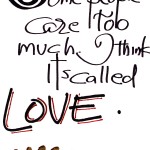 Some people
care Too
much. I think
It's called
LOVE.